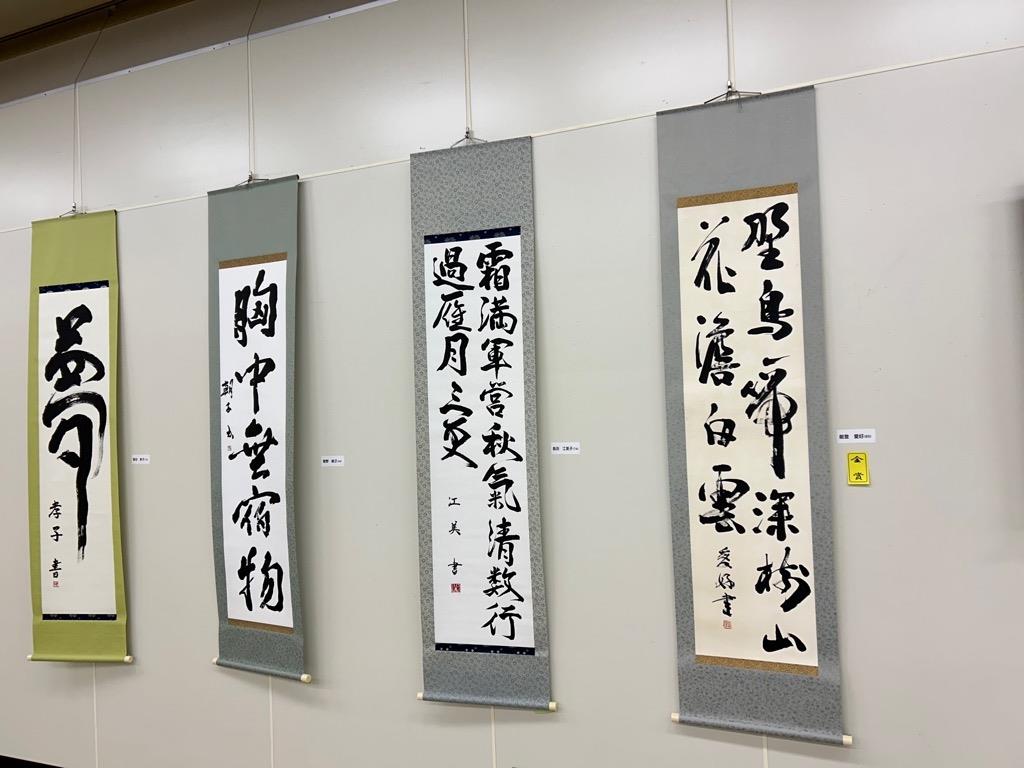 夢
孝子書
胸中無宿物
朝子書
霜満軍営秋氣清数行
過雁月三更
江美書
野鳥啼深樹山
花澹白雲
愛好書
金賞